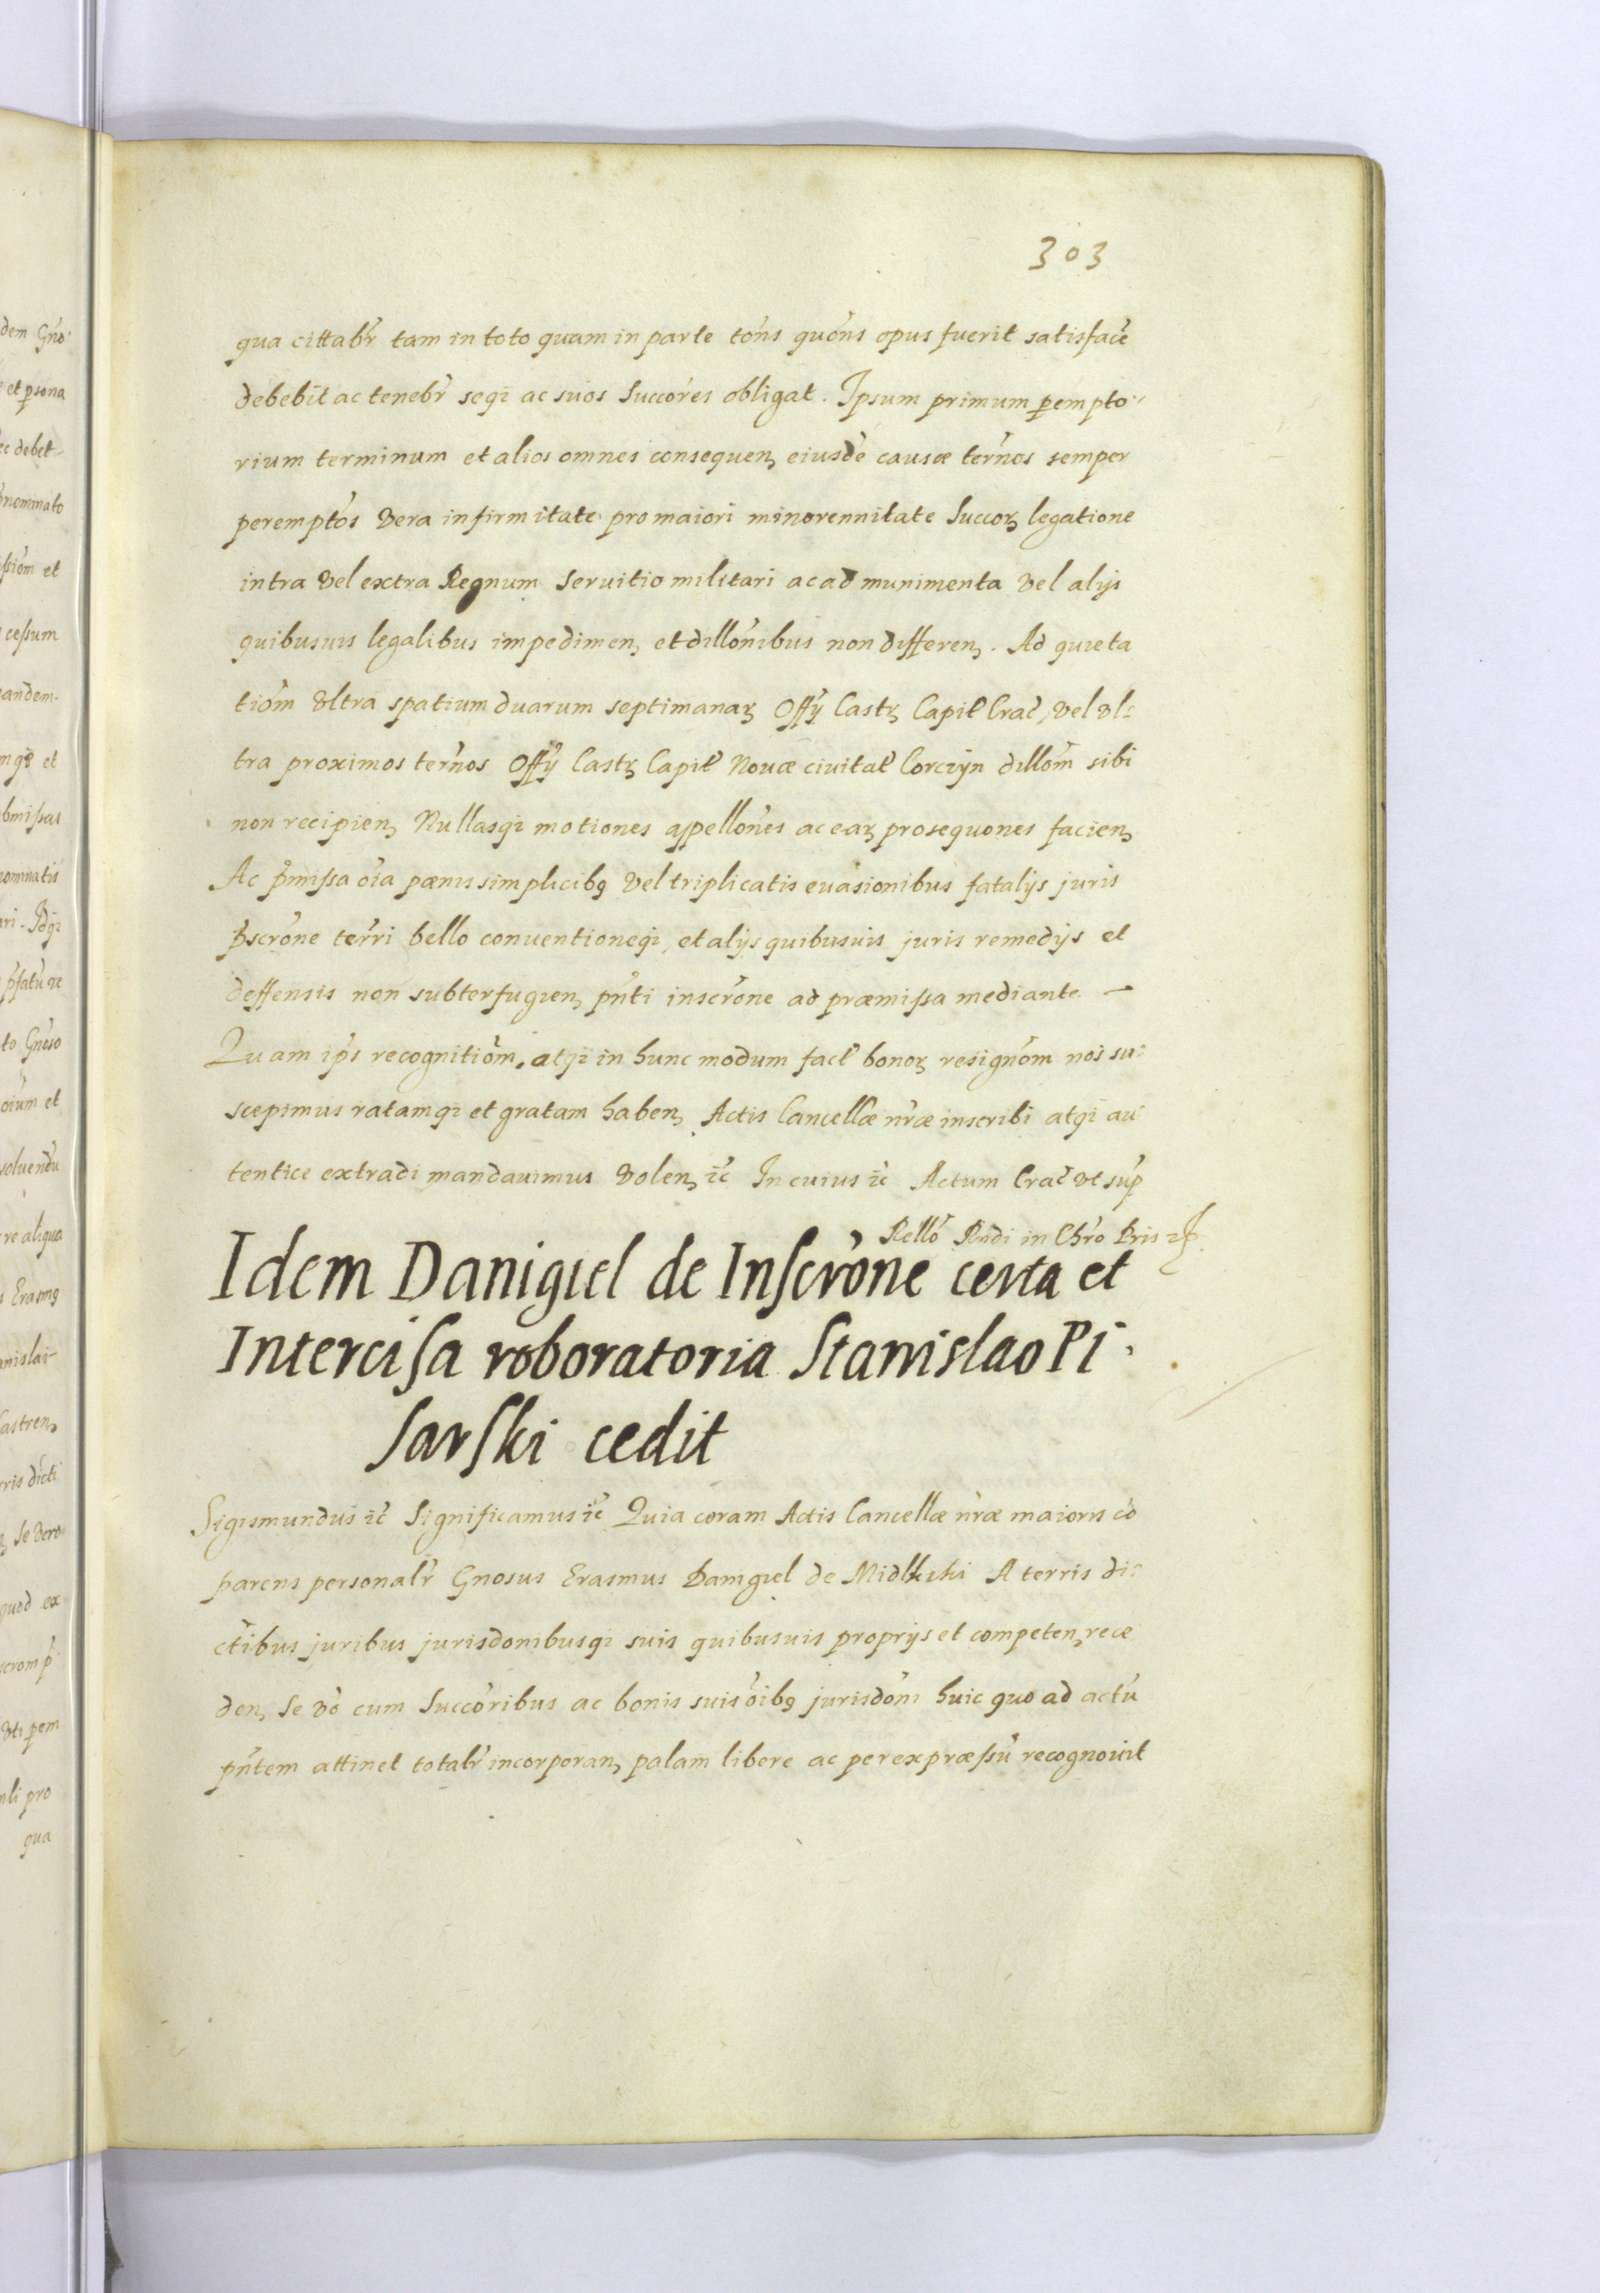 303
qua cittabr̃ tam in toto quam in parte tõns quõns opus fuerit satisfacẽ
debebit ac tenebr̃ seqȝ ac suos Succõres obligat. Ipsum primum pempto-
rium terminum et alios omnes consequenȝ eiusdẽ causæ ter̃nos semper
peremptõs vera infirmitate pro maiori minorennitate Succorȝ legatione
intra vel extra Regnum Seruitio militari ac ad munimenta vel alijs
quibusuis legalibus impedimenȝ et dillõnibus non differenȝ. Ad quieta
tiõm vltra spatium duarum septimanarȝ Offy Castrȝ Capitl Crac̃, vel vl:
tra proximos ter̃nos Offy Castrȝ Capitl Nouæ ciuitatl Corczyn dillõm sibi
non recipienȝ Nullasqȝ motiones appellõnes ac earȝ prosequones facienȝ
Ac p̃missa oĩa pænis simplicibꝯ vel triplicatis euasionibus fatalijs juris
p̃scrõne ter̃ri bello conuentioneqȝ, et alijs quibusuis juris remedijs et
deffensis non subterfugienȝ pñti inscrõne ad præmissa mediante —
Quam ip̃s recognitiõm, atqȝ in hunc modum factl bonorȝ resignõm nos su:
scepimus ratamqȝ et gratam habenȝ Actis Cancellæ nr̃æ inscribi atqȝ au
tentice extradi mandauimus volenȝ ꝛc̃ In cuius ꝛc̃ Actum Crac̃ vt sup̃
Rellõ Rñdi in Chr̃o Pris
Idem Danigiel de Inscrõne certa et
Intercisa roboratoria Stanislao Pi
sarski cedit
Sigismundus ꝛc̃ Significamus ꝛc̃ Quia coram Actis Cancellæ nr̃æ maioris cõ
parens personalr̃ Gnosus Erasmus Damgiel de A terris di:
ctibus juribus jurisdonibusqȝ suis quibusuis proprijs et competenȝ rece
denȝ Se võ cum Succõribus ac bonis suis õibꝯ jurisdõni huic quo ad actũ
pñtem attinet totalr̃ incorporanȝ palam libere ac per expræssũ recognouit